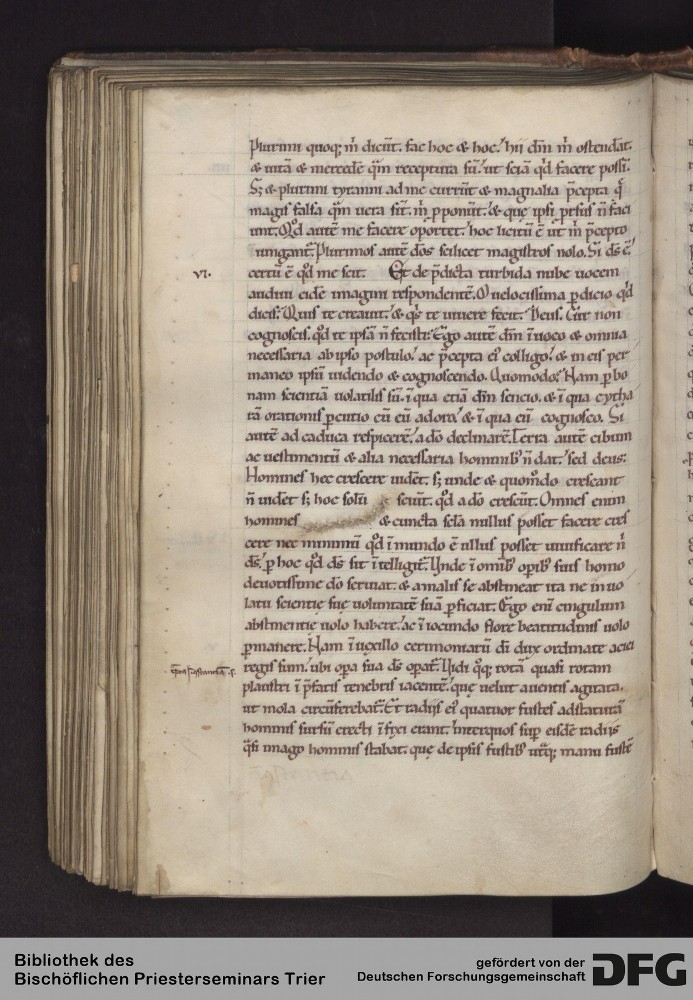 plurimi quoq; m̄ dicūt. fac hoc & hoc. hii dm̄ m̄ ostendāt.
& uitā & mercedē q̄m receptura sū. ut sciā qd̄ facere possī.
S; & plurimi tyranni ad me currūt & magnalia p̄cepta q̄
magis falsa q̄m uera sūt. m̄ p̄ponūt. & quę ipsi p̄rsus n̄ faci
unt. Qd̄ autē me facere oportet. hoc licitū ē ut m̄ p̄cepto
iungant. Plurimos autē dōs scilicet magistros nolo. Si ds̄ ē.
VI. certū ē qd̄ me scit. Et de p̄dicta turbida nube uocem
audiui eidē imagini respondentē. O uelocissima p̄dicio qd̄
dicis. Quis te creauit. & qs̄ te uiuere fecit. Deus. Cur non
cognoscis. qd̄ te ipsā n̄ fecisti. Ego autē dm̄ īuoco & omnia
necessaria ab ipso postulo. ac p̄cepta eꝰ colligo. & in eis per
maneo ipsū uidendo & cognoscendo. Quomodo. Nam p̄ bo
nam scientiā uolatilis sū. ī qua etiā dm̄ sencio. & ī qua cytha
rā orationis p̄cutio cū eū adoro. & ī qua eū cognosco. Si
autē ad caduca respicerē. a dō declinarē. Terra autē cibum
ac uestimentū & alia necessaria hominibꝰ n̄ dat. sed deus.
Homines hec crescere uidēt. s; unde & quom̊do crescant
n̄ uidēt s; hoc solū sciūt. qd̄ a dō crescūt. Omnes enim
homines & cuncta sclā nullus posset facere cres
cere nec minimū qd̄ ī mundo ē ullus posset uiuificare n̄
ds̄. p̄ hoc qd̄ ds̄ sit ītelligit̄. Unde ī omibꝰ opibꝰ suis homo
deuotissime dō seruiat. & a malis se abstineat ita ne in uo
latu scientię suę uoluntatē suā p̄ficiat. Ego enī cingulum
abstinentię uolo habere. ac ī iocundo flore beatitudinis uolo
p̄manere. Nam ī uexillo cerimoniarū dī dux ordinate aciei
regis sum. ubi opa sua ds̄ opat̄. Uidi qq; rotā quasi rotam
plaustri ī p̄fatis tenebris iacentē. quę uelut a uentis agitata.
ut mola circūferebat̄. Et radiis eꝰ quatuor fustes adstatutā
hominis sursū erecti īfixi erant. Inter quos sup̄ eisdē radiis
q̄si imago hominis stabat. quę de ipsis fustibꝰ utq̄; manu fustē
Bibliothek des
Bischöflichen Priesterseminars Trier
gefördert von der
Deutschen Forschungsgemeinschaft
DFG